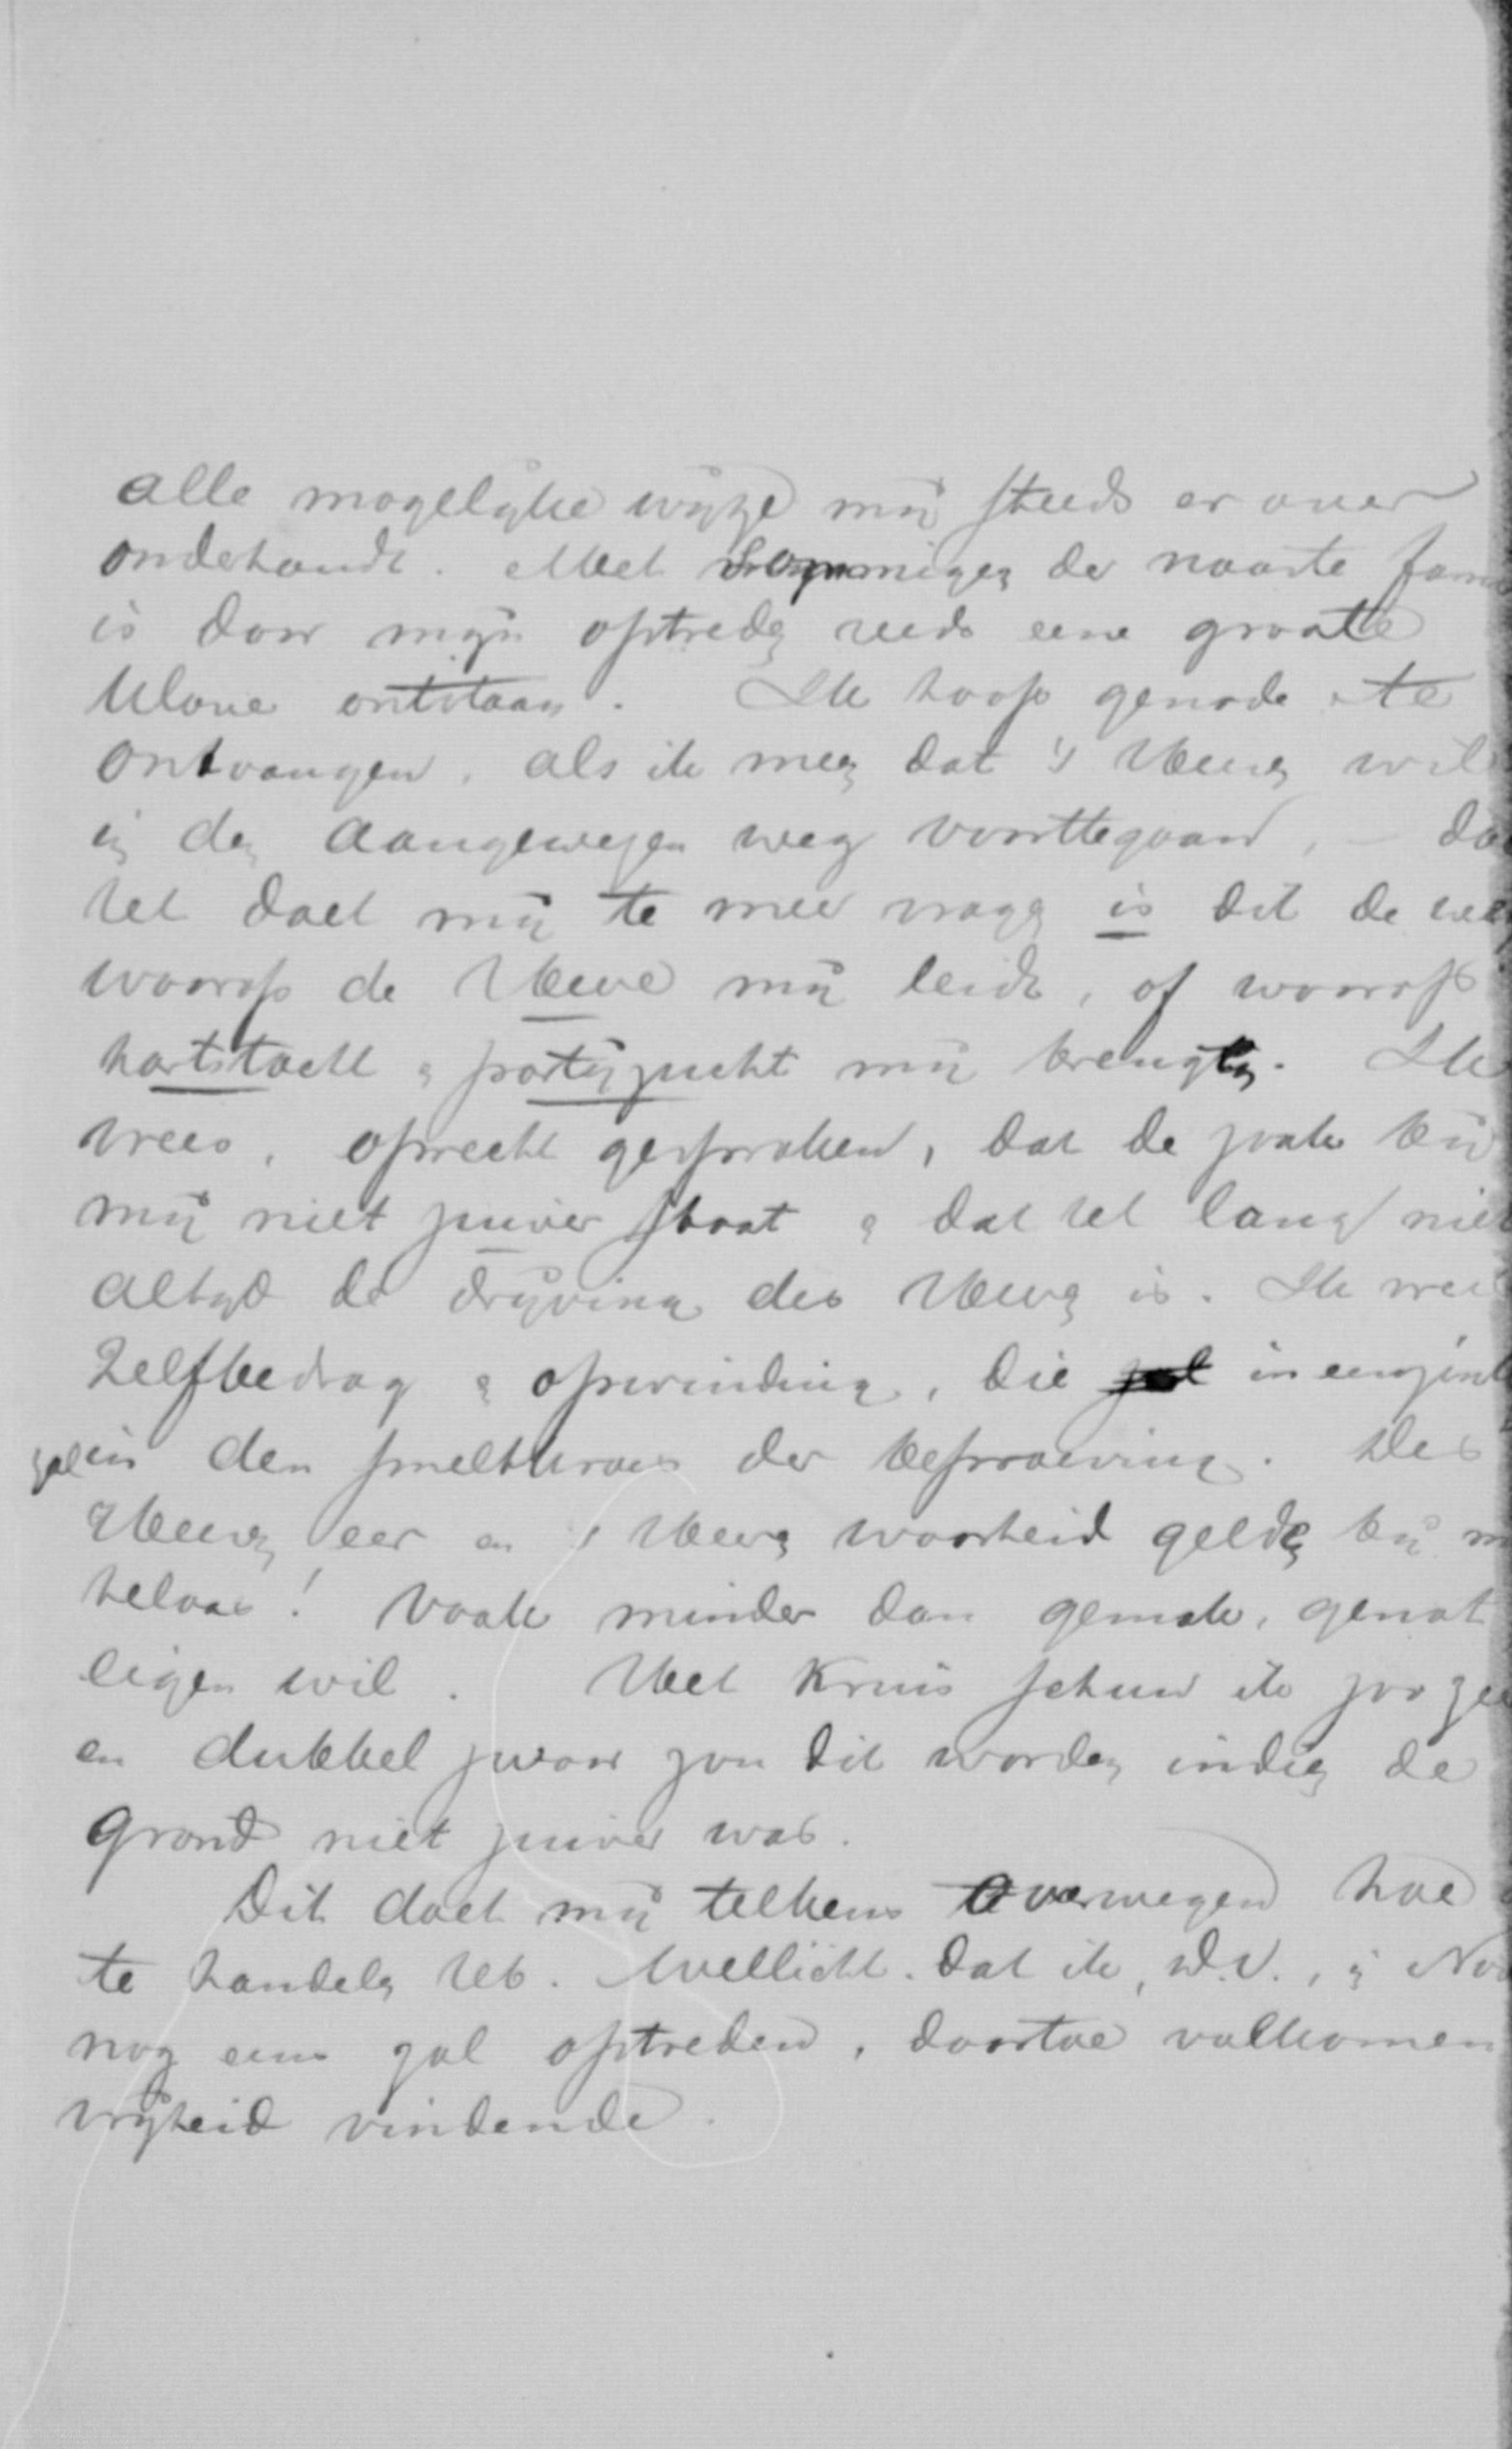 alle mogelijke wijze mij steeds er over
onderhoudt. Met sommigen der naaste fam
is door mijn optreden reeds eene groote
klove ontstaan. Ik hoop genade te
ontvangen, als ik meen dat 's Heeren wil
in den aangewezen weg voorttegaan, — da
het doet mij te meer vragen is dit de weg
waarop de Heere mij leidt, of waarop
hartstocht & partijzucht mij brengen. Ik
vrees, oprecht gesproken, dat de zaak bij
mij niet zuiver staat & dat het lang niet
altijd de drijving des Heeren is. Ik vrees
zelfbedrog & opwinding, die zal ineenzink
zal in den smeltkroes der beproeving. Des
Heeren eer en 's Heeren waarheid gelden bij m
helaas! vaak minder dan gemak, genot
eigen wil. Het Kruis schuw ik zoo
en dubbel zwaar zou dit worden indien de
grond niet zuiver was.
Dit doet mij telkens overwegen hoe
te handelen heb. Wellicht dat ik, D.V., in Nov
nog eens zal optreden, daartoe volkomen
vrijheid vindende.